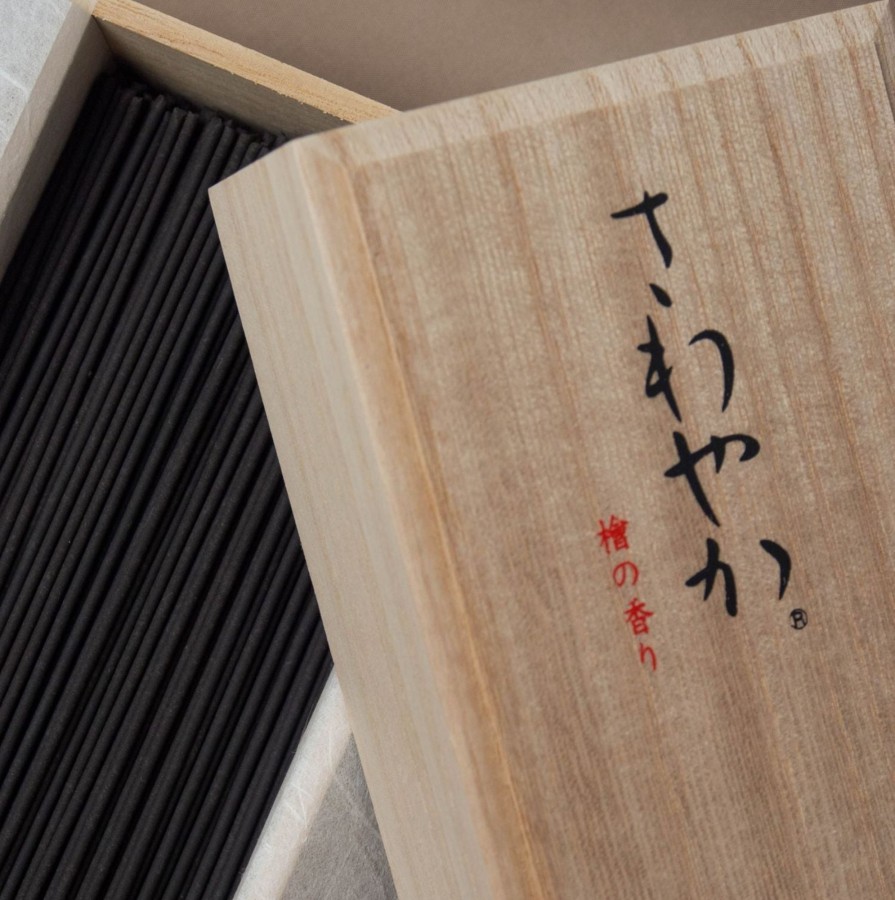 さわやか®
檜の香り